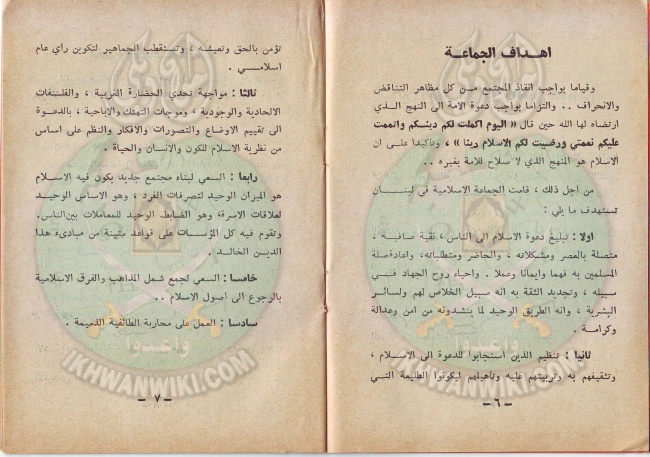 اهداف الجماعة
وقياما بواجب انقاذ المجتمع من كل مظاهر التناقض
والانحراف .. والتزاما بواجب دعوة الامة الى النهج الذي
ارتضاه لها الله حين قال « اليوم اكملت لكم دينكم واتممت
عليكم نعمتي ورضيت لكم الاسلام دينا » ، وتأكيدا على ان
الاسلام هو المنهج الذي لا صلاح للامة بغيره ..
من اجل ذلك ، قامت الجماعة الاسلامية في لبنان
تستهدف ما يلي :
اولا : تبليغ دعوة الاسلام الى الناس ، نقية صافية ،
متصلة بالعصر ومشكلاته ، والحاضر ومتطلباته ، واعادة صلة
المسلمين به فهما وايمانا وعملا . واحياء روح الجهاد في
سبيله ، وتجديد الثقة به انه سبيل الخلاص لهم ولسائر
البشرية ، وانه الطريق الوحيد لما ينشدونه من امن وعدالة
وكرامة .
ثانيا : تنظيم الذين استجابوا للدعوة الى الاسلام ،
وتثقيفهم به وتربيتهم عليه وتأهيلهم ليكونوا الطليعة التي
– ٦ –
تؤمن بالحق وتعيشه ، وتستقطب الجماهير لتكوين رأي عام
اسلامي .
ثالثا : مواجهة تحدي الحضارة الغربية ، والفلسفات
الالحادية والوجودية ، وموجات التهتك والاباحية ، بالدعوة
الى تقييم الاوضاع والتصورات والافكار والنظم على اساس
من نظرية الاسلام للكون والانسان والحياة .
رابعا : السعي لبناء مجتمع جديد يكون فيه الاسلام
هو الميزان الوحيد لتصرفات الفرد ، وهو الاساس الوحيد
لعلاقات الاسرة، وهو الضابط الوحيد للمعاملات بين الناس.
وتقوم فيه كل المؤسسات على قواعد متينة من مبادىء هذا
الدين الخالد .
خامسا : السعي لجمع شمل المذاهب والفرق الاسلامية
بالرجوع الى اصول الاسلام ..
سادسا : العمل على محاربة الطائفية الذميمة .
– ٧ –
وأعدوا
IKHWANWIKI.COM
وأعدوا
IKHWANWIKI.COM